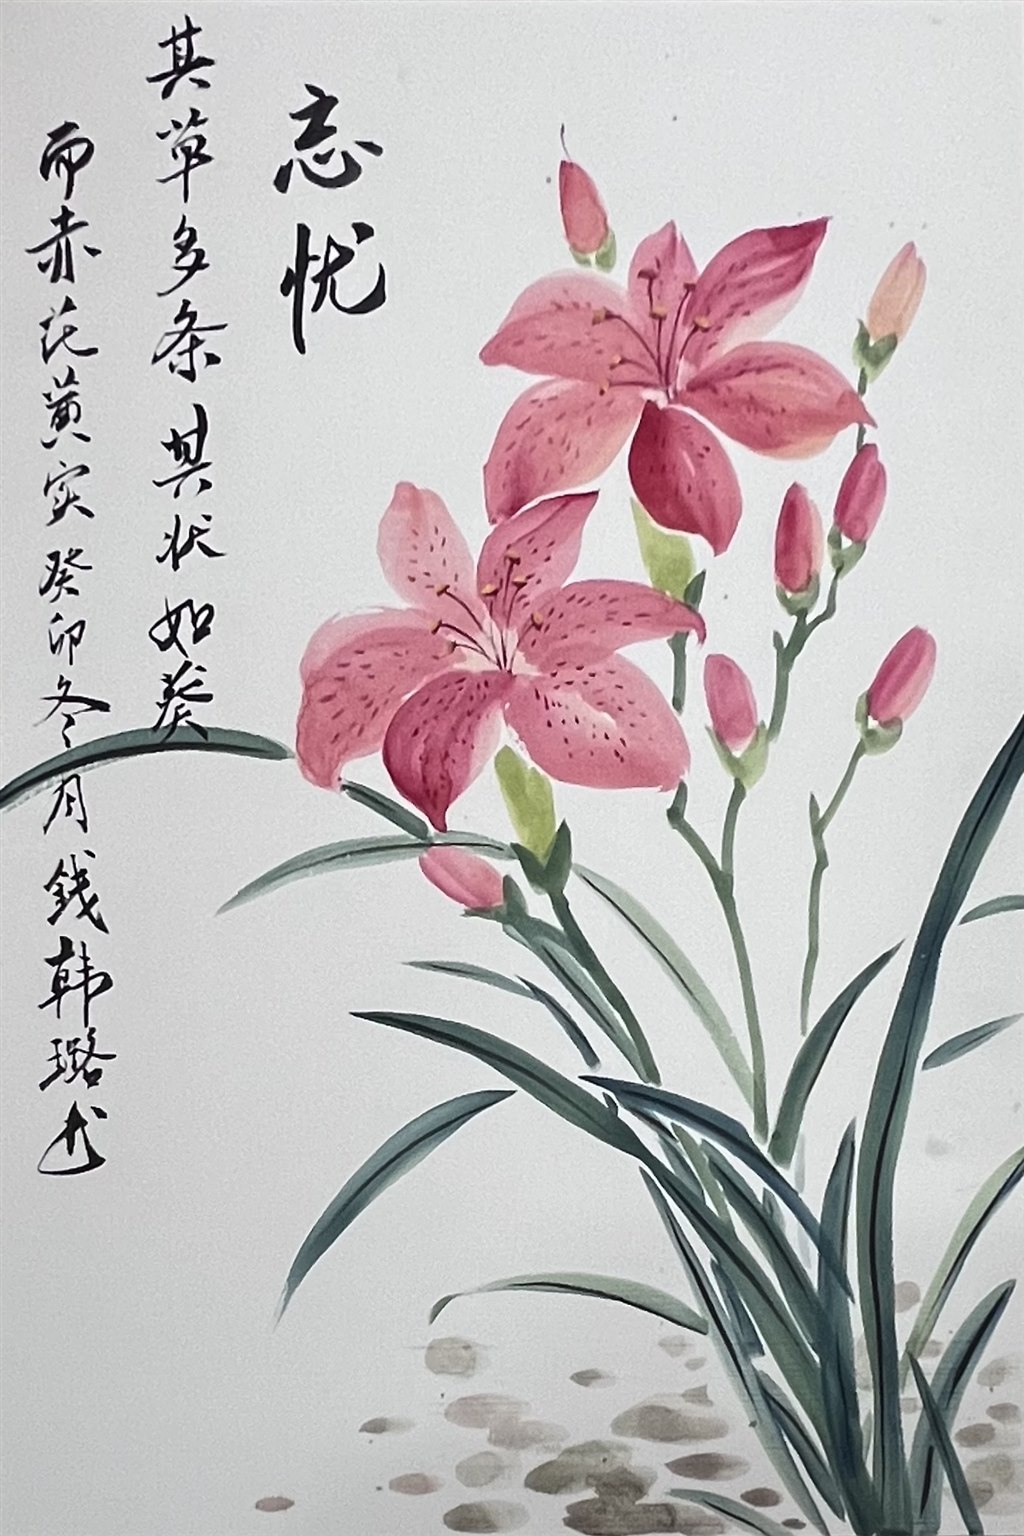 忘忧
其草多条其状如葵
而赤花黄实癸卯冬月钱韩璐书